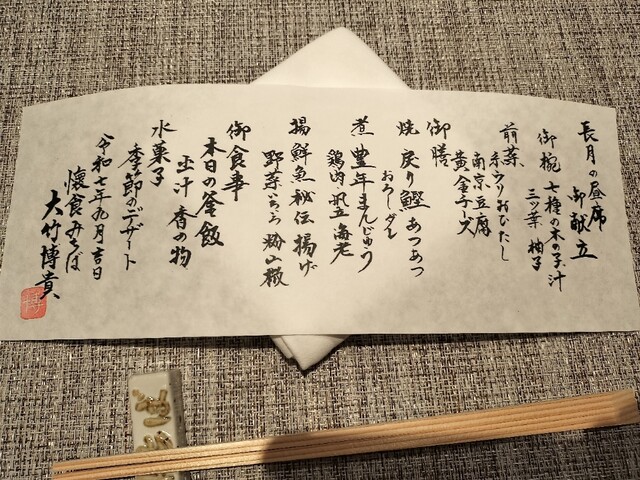 長月の昼席
御献立
御椀 七種の木の子汁
三ツ葉 柚子
前菜 糸ウリおひたし
南京豆腐
黄金チーズ
御膳
焼 戻り鰹あつあつ
おろしダレ
煮 豊年まんじゅう
鶏肉 帆立 海老
揚 鮮魚秘伝揚げ
野菜いろいろ 粉山椒
御食事
本日の釜飯
赤汁 香の物
水菓子
季節のデザート
令和七年九月吉日
懐食みちば
大竹博貴
博